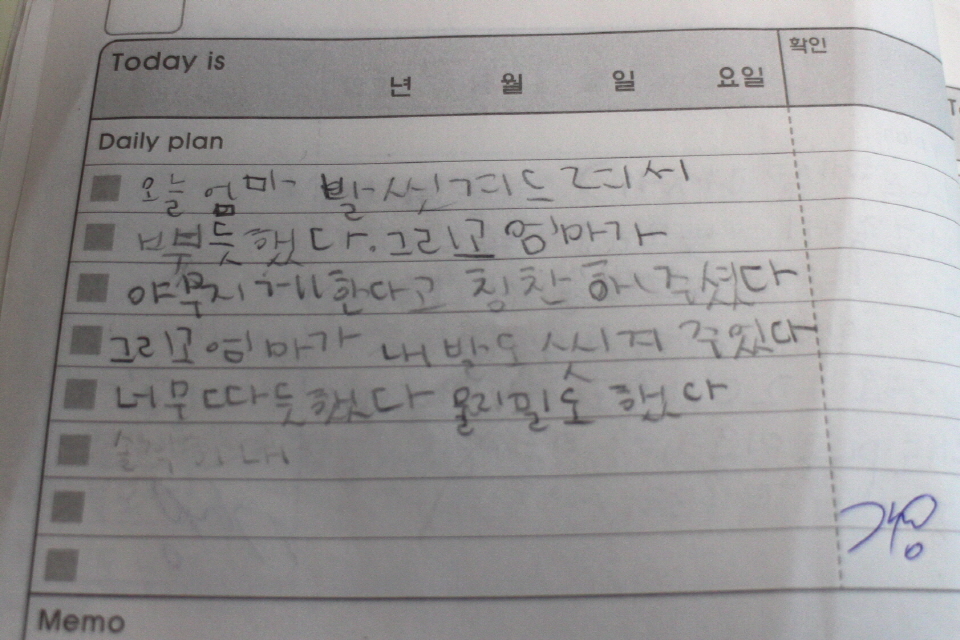 Today is 년 월 일 요일 확인
Daily plan
오늘 엄마 발 씻겨드려서
뿌듯했다. 그리고 엄마가
야무지게 한다고 칭찬 해주셨다
그리고 엄마가 내 발도 씻겨 주었다
너무 따듯했다 했다
Memo